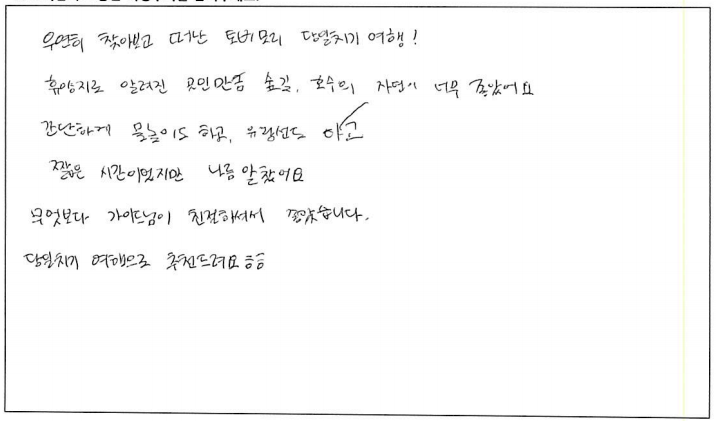 우연히 찾아보고 떠난 토버모리 당일치기 여행!
휴양지로 알려진 곳인만큼 숲길, 호수의 자연이 너무 좋았어요
간단하게 물놀이도 하고, 유람선도 타고
짧은 시간이었지만 나름 알찼어요
무엇보다 가이드님이 친절하셔서 좋았습니다.
당일치기 여행으로 추천드려요 ㅎㅎ